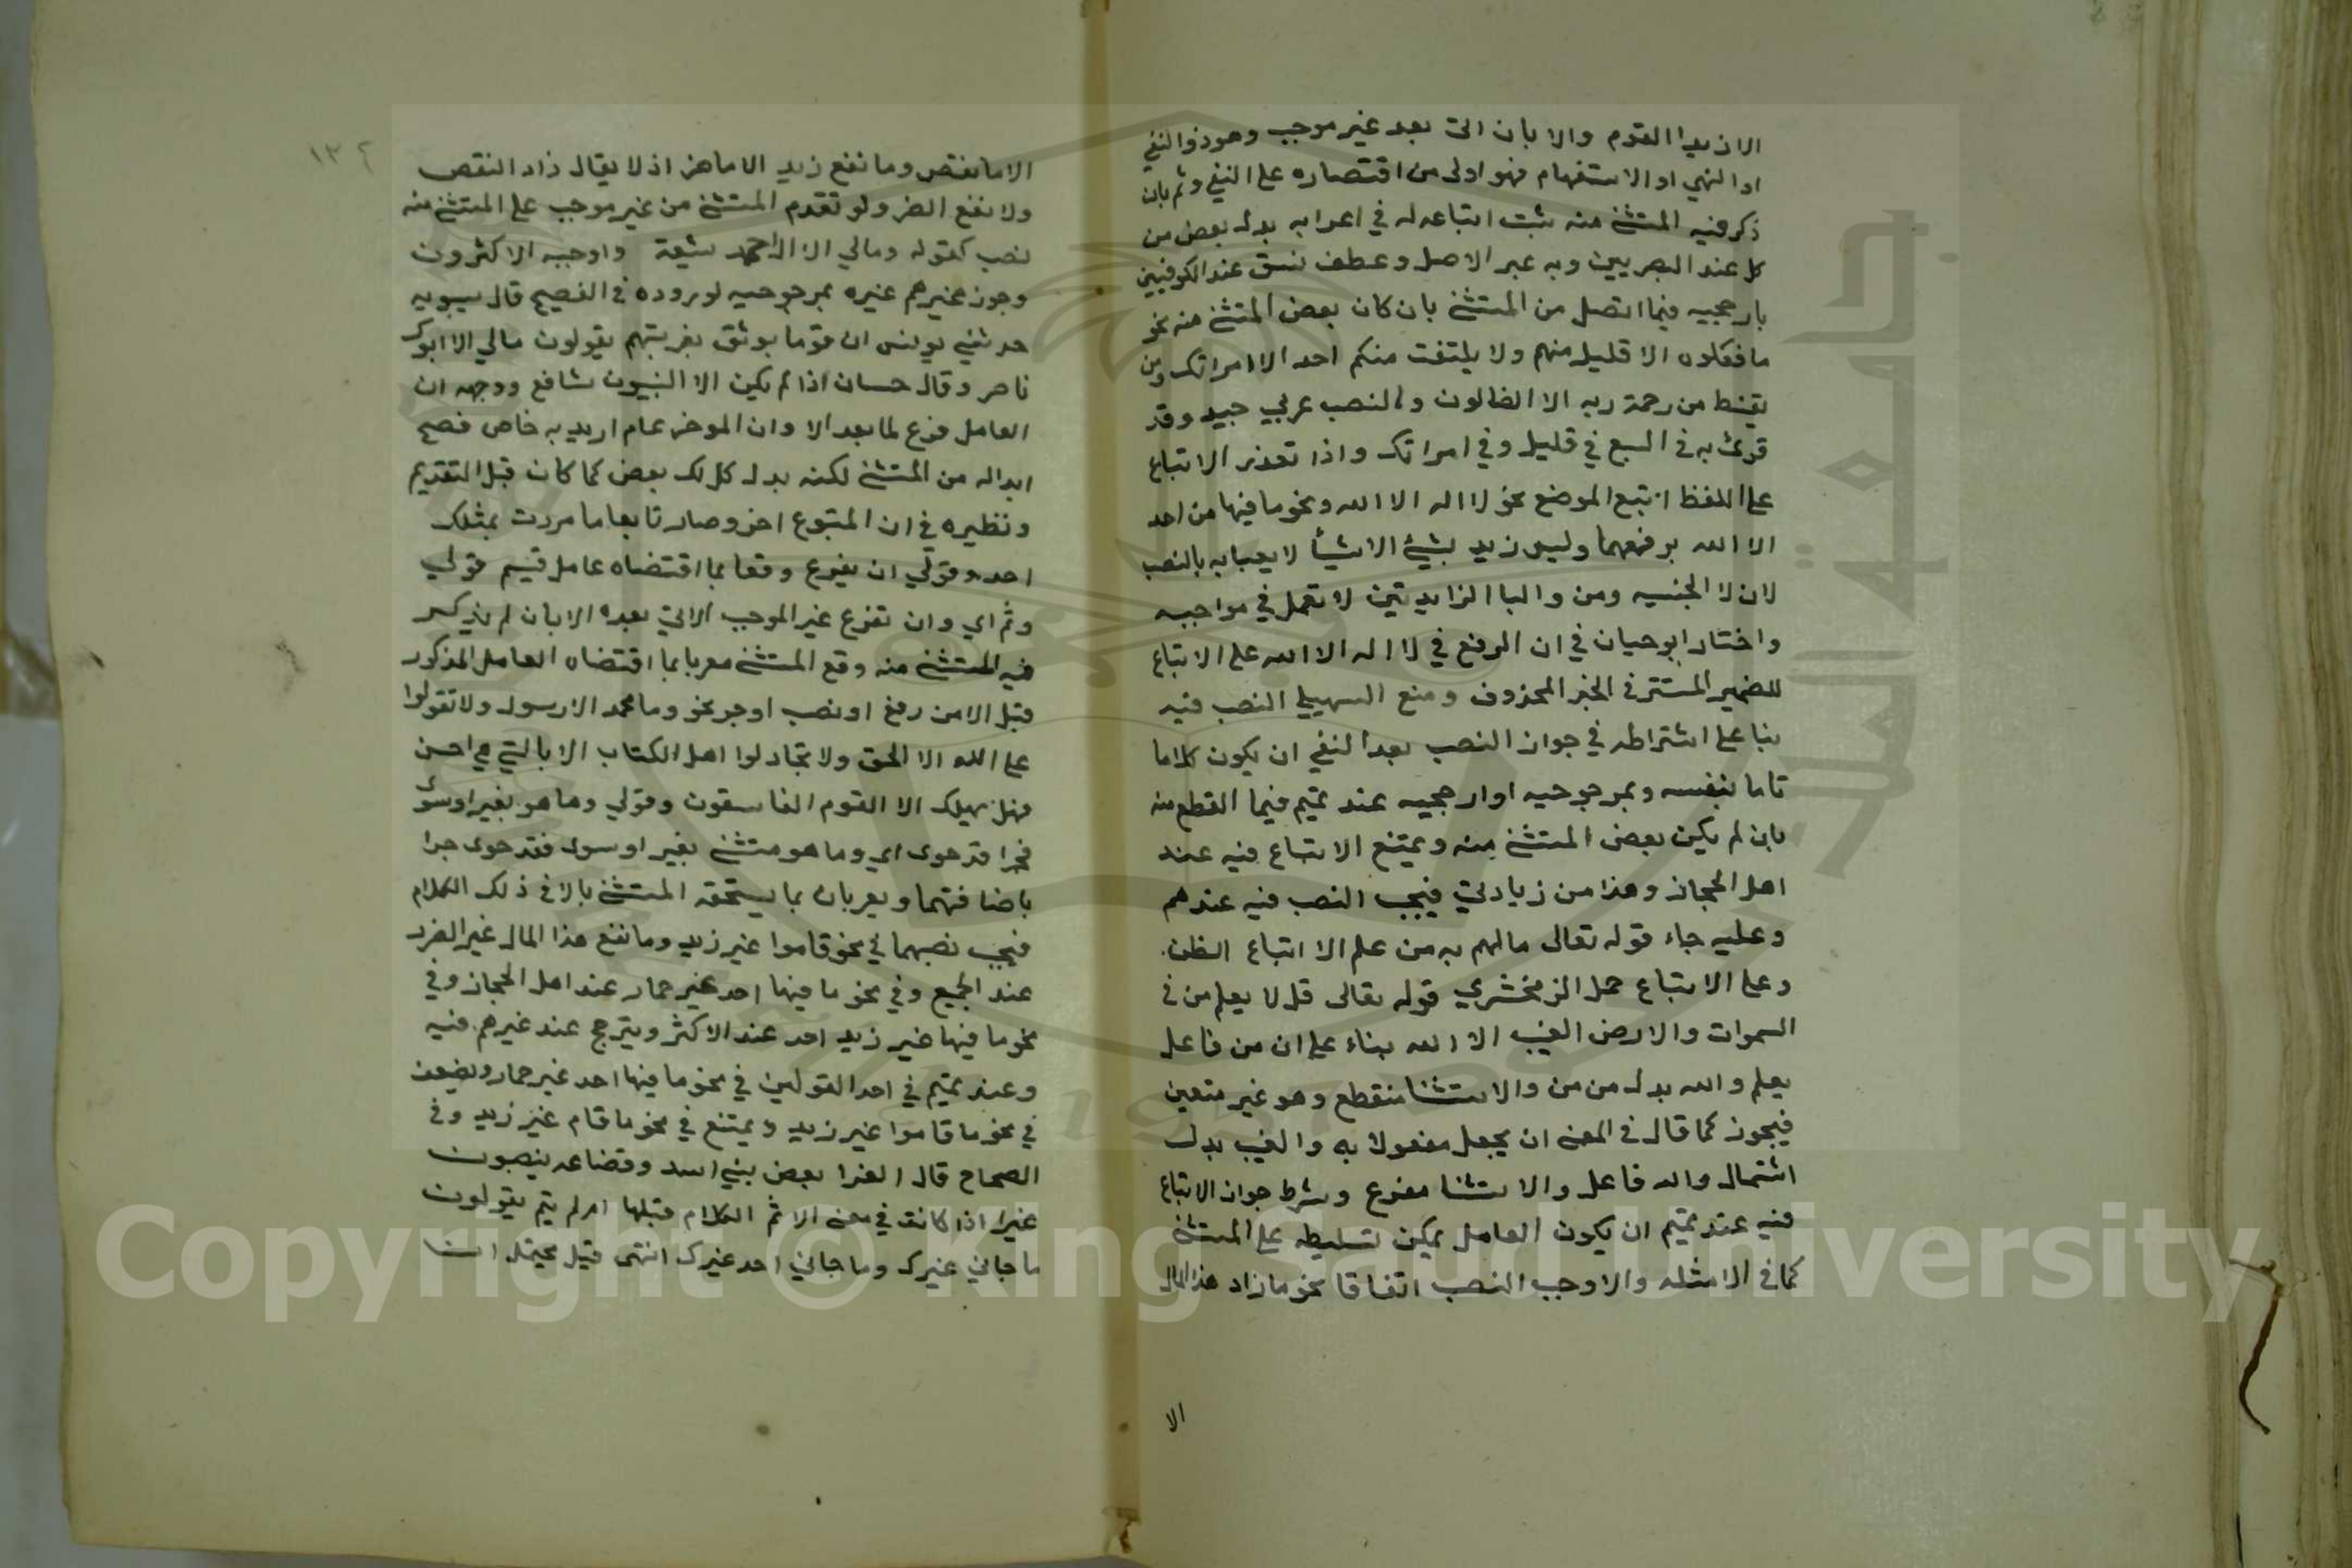 الا زيدا القوم والا بان اتى بعد غير موجب وهو ذو النفي
او النهي او الاستفهام فهو اولى من اقتصاره على النفي وتم بان
ذكر فيه المستثنى منه ثبت اتباعه له في اعرابه بدل بعض من
كل عند البصريين وبه عبر الاصل وعطف نسق عند الكوفيين
بارجحيه فيما اتصل من المستثنى بان كان بعض المستثنى منه نحو
ما فعلوه الا قليل منهم ولا يلتفت منكم احد الا امراتك ومن
يقنط من رحمة ربه الا الضالون والنصب عربي جيد وقد
قرئ به في السبع في قليل وفي امراتك واذا تعذر الاتباع
على اللفظ اتبع الموضع نحو لا اله الا الله ونحو ما فيها من احد
الا الله برفعهما وليس زيد بشئ الا شيأ لا يعبا به بالنصب
لان لا الجنسيه ومن والبا الزايدتين لا تعمل في مواجبه
واختار ابو حيان في ان الرفع في لا اله الا الله على الاتباع
للضمير المستتر في الخبر المحذوف ومنع السهيلي النصب فيه
بنا على اشتراطه في جواز النصب بعد النفي ان يكون كلاما
تاما بنفسه وبمرجوحيه او ارجحيه عند تميم فيما انقطع منه
بان لم يكن بعض المستثنى منه ويمتنع الاتباع فيه عند
اهل الحجاز وهذا من زيادتي فيجب النصب فيه عندهم
وعليه جاء قوله تعالى مالهم به من علم الا اتباع الظن
وعلى الاتباع حمل الزمخشري قوله تعالى قل لا يعلم من في
السموات والارض الغيب الا الله بناء على ان من فاعل
يعلم والله بدل من من والاستثنا منقطع وهو غير متعين
فيجوز كما قال في المغنى ان يجعل مفعولا به والغيب بدل
اشتمال والله فاعل والاستثنا مفرع وشرط جواز الاتباع
فيه عند تميم ان يكون العامل يمكن تسليطه على المستثنى
كما في الامثله والا وجب النصب اتفاقا نحو ما زاد هذا المال
الا
١٣٤
الا ما نقص وما نفع زيد الا ما ضر اذ لا يقال زاد النقص
ولا نفع الضر ولو تقدم المستثنى من غير موجب على المستثنى منه
نصب كقوله ومالي الا ال احمد شيعة واوجبه الاكثرون
وجوز غيرهم غيره بمرجوحيه لوروده في الفصيح قال سيبويه
حدثني يونس ان قوما يوثق بعربيتهم يقولون مالي الا ابوك
ناصر وقال حسان اذا لم يكن الا النبيون شافع ووجهه ان
العامل فرع لما بعد الا وان الموخر عام اريد به خاص فصح
ابداله من المستثنى لكنه بدل كل لا بعض كما كان قبل التقديم
ونظيره في ان المتبوع اخر وصار تابعا ما مررت بمثلك
احد وقولي ان يفرع وقعا بما اقتضاه عامل قسيم قولي
وتم اي وان تفرع غير الموجب الاتي بعده الا بان لم يذكر
فيه المستثنى منه وقع المستثنى معربا بما اقتضاه العامل المذكور
قبل الا من رفع او نصب او جر نحو وما محمد الا رسول ولا تقولوا
على الله الا الحق ولا تجادلوا اهل الكتاب الا بالتي هي احسن
فهل يهلك الا القوم الفاسقون وقولي وما هو بغير او سوى
فجرا قد حوى اي وما هو مستثنى بغير او سوى فقد حوى جرا
باضافتهما ويعربان بما يستحقه المستثنى بالا في ذلك الكلام
فيجب نصبهما في نحو قاموا غير زيد وما نفع هذا المال غير الضرر
عند الجميع وفي نحو ما فيها احد غير حمار عند اهل الحجاز وفي
نحو ما فيها غير زيد احد عند الاكثر ويترجح عند غيرهم فيه
وعند تميم في احد القولين في نحو ما فيها احد غير حمار ويضعف
في نحو ما قاموا غير زيد ويمتنع في نحو ما قام غير زيد وفي
الصحاح قال الفرا بعض بني اسد وقضاعه ينصبون
غيرا اذا كانت في معنى الا تم الكلام قبلها ام لم يتم يقولون
ما جاني غيرك وما جاني احد غيرك انتهى قيل يحتمل
Copyright © King Saud University